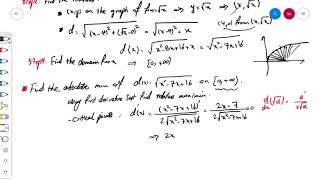 • (x,y) on the graph of f(x)=√x ⇒ y=√x ⇒ (x, √x)
• d = √((x-4)²+(√x-0)²) = √((x-4)²+x)
(x,y) (x, √x)
d(x) = √(x²-8x+16+x) = √(x²-7x+16)
Find the domain for x ⇒ [0,+∞)
Find the absolute min of d(x)=√(x²-7x+16) on [0,+∞)
using first derivative test find relative max/min
- critical points : d'(x) = (x²-7x+16)' / 2√(x²-7x+16) = 2x-7 / 2√(x²-7x+16) =0
d/dx (√u) = u' / 2√u
⇒ 2x